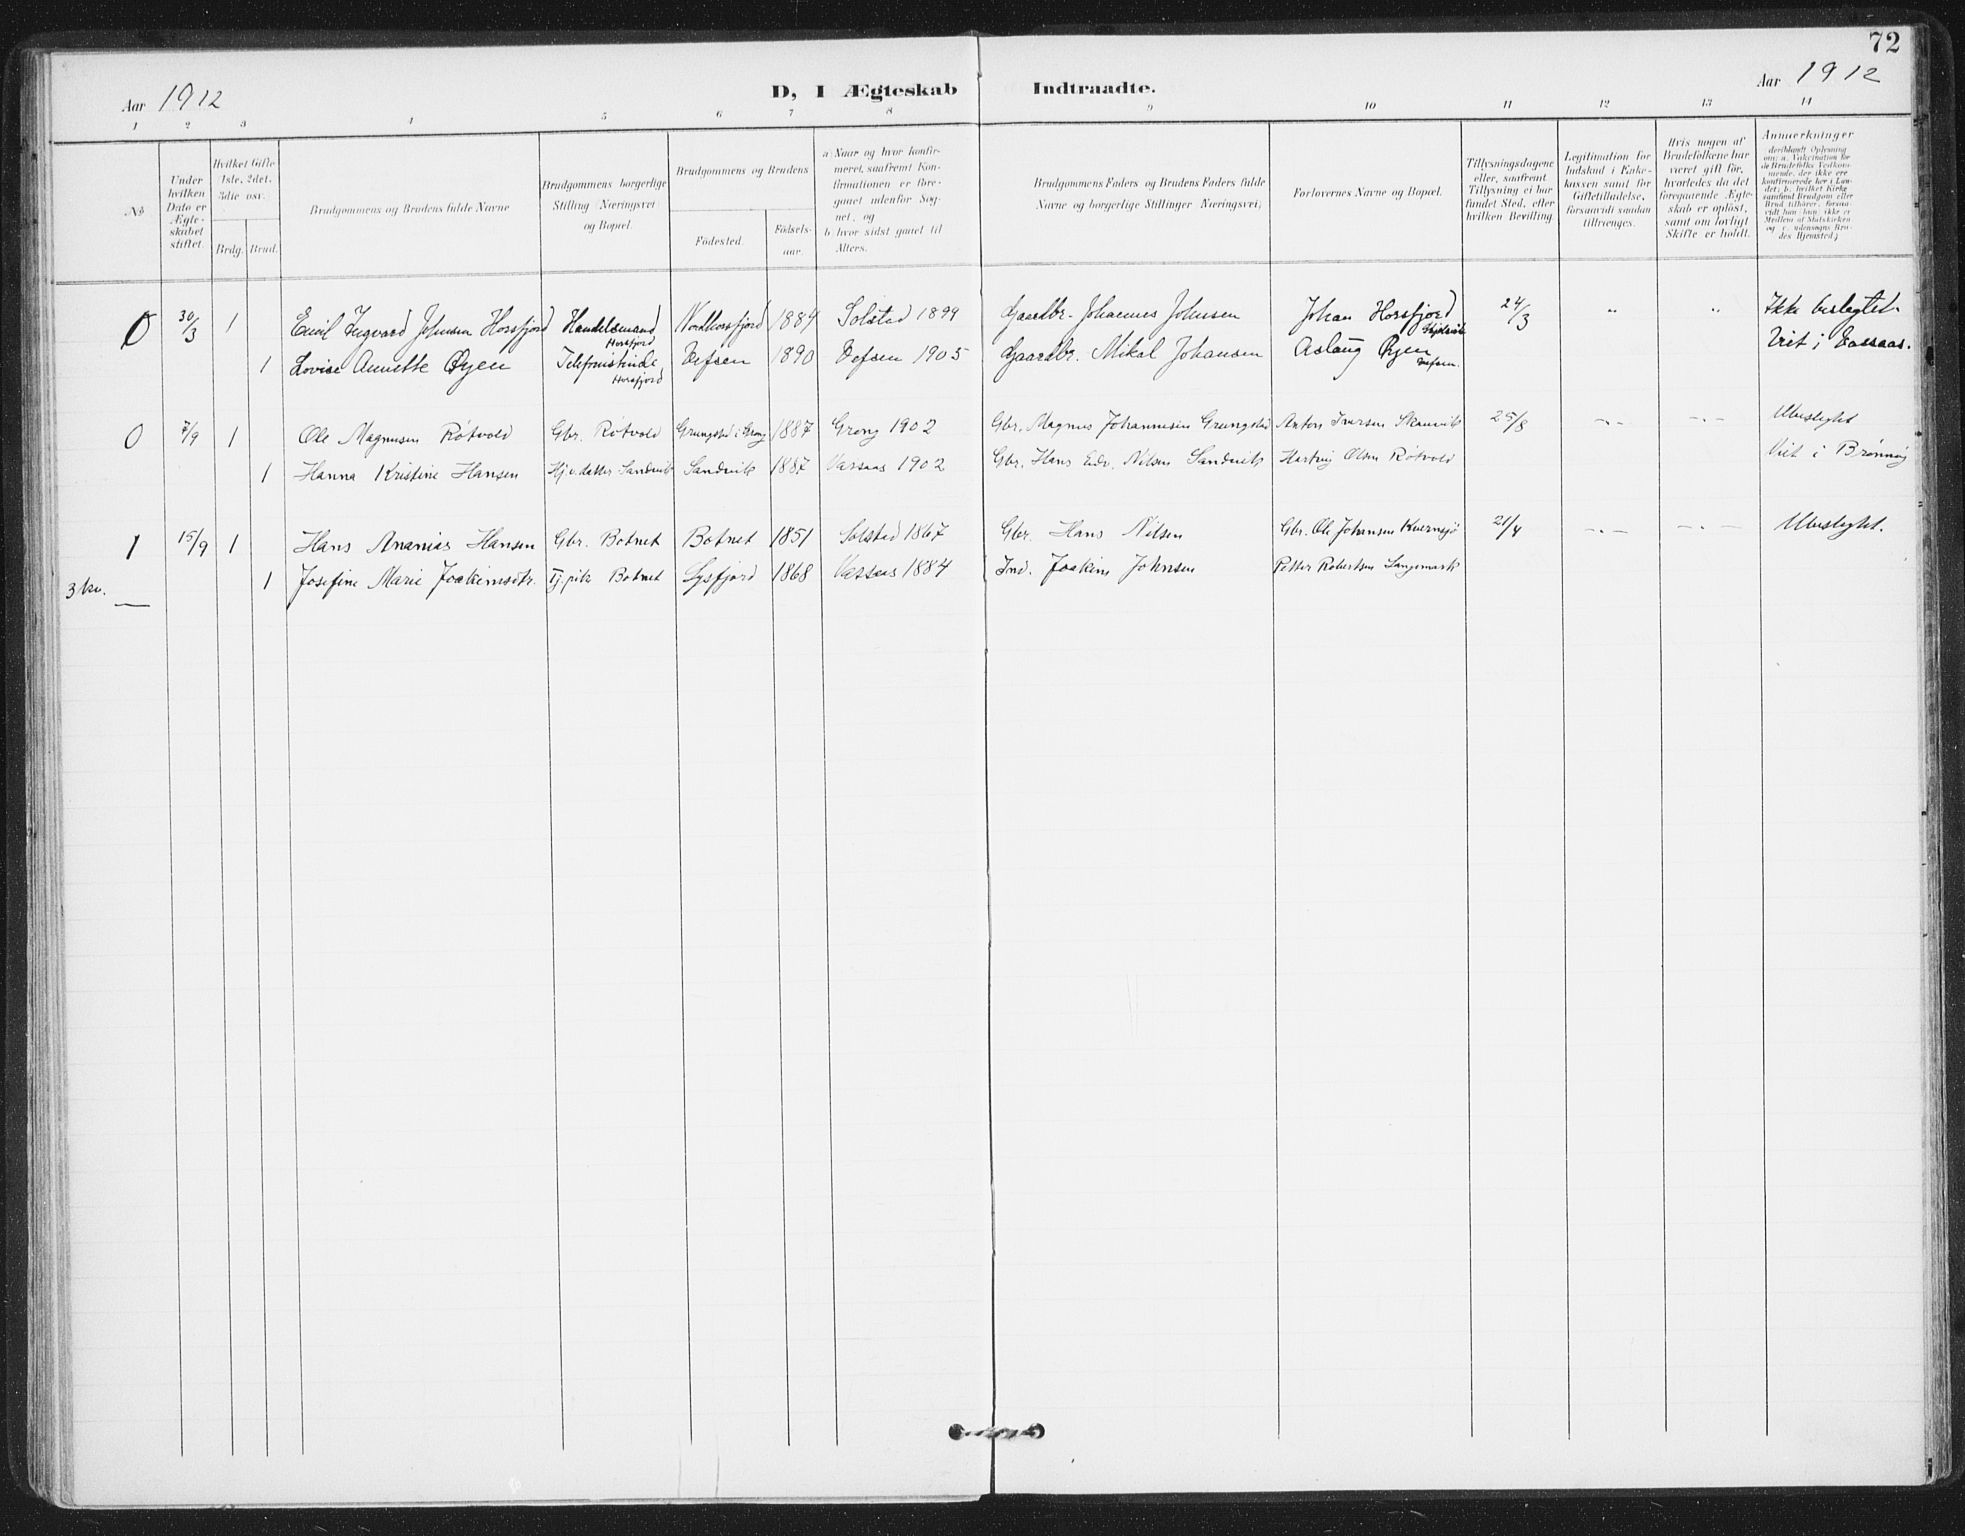 72
Aar 1912
D, I Ægteskab Indtraadte.
Aar 1912
1 2 3 4 5 6 7 8 9 10 11 12 13 14
No
Under hvilken Dato er Ægteskabet stiftet.
Hvilket Gifte 1ste, 2det, 3die osv.
Brdg. Brud.
Brudgommens og Brudens fulde Navne
Brudgommens borgerlige Stilling (Næringsvei) og Bopæl.
Brudgommens og Brudens
Födested.
Födselsaar.
a) Naar og hvor konfirmeret, saafremt Konfirmationen er foregaaet udenfor Sognet, og
b. hvor sidst gaaet til Alters.
Brudgommens Faders og Brudens Faders fulde Navne og borgerlige Stillinger (Næringsvei)
Forlovernes Navne og Bopæl.
Tillysningsdagene eller, saafremt Tillysning ei har fundet Sted, efter hvilken Bevilling.
Legitimation for Indskud i Enkekassen samt for Giftetilladelse, forsaavidt saadan tiltrænges.
Hvis nogen af Brudefolkene har været gift för, hvorledes da det foregaaende Ægteskab er oplöst, samt om lovligt Skifte er holdt.
Anmerkninger
(deriblandt Oplysning om: a. Vakcination for de Brudefolks Vedkommende, der ikke ere konfirmerede her i Landet; b. hvilket Kirkesamfund Brudgom eller Brud tilhører, forsaavidt han (hun) ikke er Medlem af Statskirken og c. udensogns Brudes Hjemsted.)
0 30/3 1 Emil Ingvard Johnsen Horsfjord Handelsmand Horsfjord Nordhorsfjord 1884 Solstad 1899 Gaardbr. Johannes Johnsen Johan Horsfjord 24/3 " " Ikke beslegtet.
1 Lovise Annette Øyen Telefonistinde Horsfjord Vefsen 1890 Vefsen 1905 Gaardbr. Mikal Johansen Aslaug Øyen Vefsen. Viet i Vassaas.
0 7/9 1 Ole Magnusen Røtvold Gbr. Røtvold Grungstad i Grong 1887 Grong 1902 Gbr. Magnus Johannesen Grungstad Anton Iversen Skauvik 25/8 -"- -"- Ubeslegtet
1 Hanna Kristine Hansen Hj.v. datter Sandvik Sandvik 1887 Vassaas 1902 Gbr. Hans Edv. Nilsen Sandvik Hartvig Olsen Røtvold Viet i Brønnøy
1 15/9 1 Hans Ananias Hansen Gbr. Botnet Botnet 1851 Solstad 1867 Gbr. Hans Nilsen Gbr. Ole Johansen Kvernsjø 21/4 -"- -"- Ubeslegtet.
1 Josefine Marie Joakimsdtr. Tj.pike Botnet Lysfjord 1868 Vassaas 1884 Ind. Joakim Johnsen Petter Robertsen Langemark
3 kv.